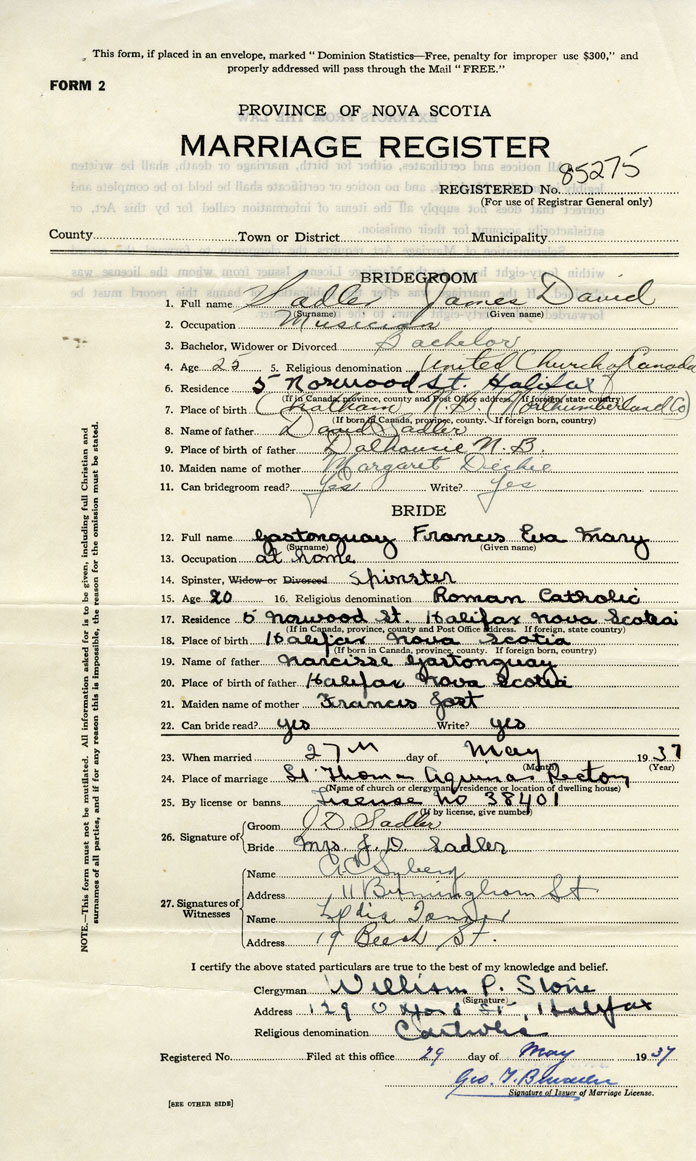 This form, if placed in an envelope, marked "Dominion Statistics—Free, penalty for improper use $300," and
properly addressed will pass through the Mail "FREE."
FORM 2
PROVINCE OF NOVA SCOTIA
MARRIAGE REGISTER
REGISTERED No. 85275
(For use of Registrar General only)
County Town or District Municipality
BRIDEGROOM
1. Full name Sadler James David
(Surname) (Given name)
2. Occupation Musician
3. Bachelor, Widower or Divorced Bachelor
4. Age 25 5. Religious denomination United Church of Canada
6. Residence 5 Norwood St. Halifax
(If in Canada, province, county and Post Office address. If foreign, state country)
7. Place of birth Chatham N.B. (Northumberland Co)
(If born in Canada, province, county. If foreign born, country)
8. Name of father David Sadler
9. Place of birth of father Dalhousie N.B.
10. Maiden name of mother Margaret
11. Can bridegroom read? Yes Write? Yes
BRIDE
12. Full name Gastonguay Francis Eva Mary
(Surname) (Given name)
13. Occupation at home
14. Spinster, Widow or Divorced Spinster
15. Age 20 16. Religious denomination Roman Catholic
17. Residence 5 Norwood St. Halifax Nova Scotia
(If in Canada, province, county and Post Office Address. If foreign, state country)
18. Place of birth Halifax Nova Scotia
(If born in Canada, province, county. If foreign born, country)
19. Name of father Narcisse Gastonguay
20. Place of birth of father Halifax Nova Scotia
21. Maiden name of mother Francis Jost
22. Can bride read? yes Write? yes
23. When married 27th day of May 1937
(Month) (Year)
24. Place of marriage St. Thomas Aquinas Rectory
(Name of church or clergyman's residence or location of dwelling house)
25. By license or banns License No 38401
(If by license, give number)
26. Signature of Groom J D Sadler
Bride Mrs. J. D. Sadler
27. Signatures of Witnesses
Name
Address 11 Birmingham St
Name Lydia
Address 19 Beech St.
I certify the above stated particulars are true to the best of my knowledge and belief.
Clergyman William P. Stone
(Signature)
Address 129 Oxford St., Halifax
Religious denomination Catholic
Registered No. Filed at this office 29 day of May 1937
Geo. T.
Signature of Issuer of Marriage License.
[SEE OTHER SIDE]
NOTE.—This form must not be mutilated. All information asked for is to be given, including full Christian and
surnames of all parties, and if for any reason this is impossible, the reason for the omission must be stated.